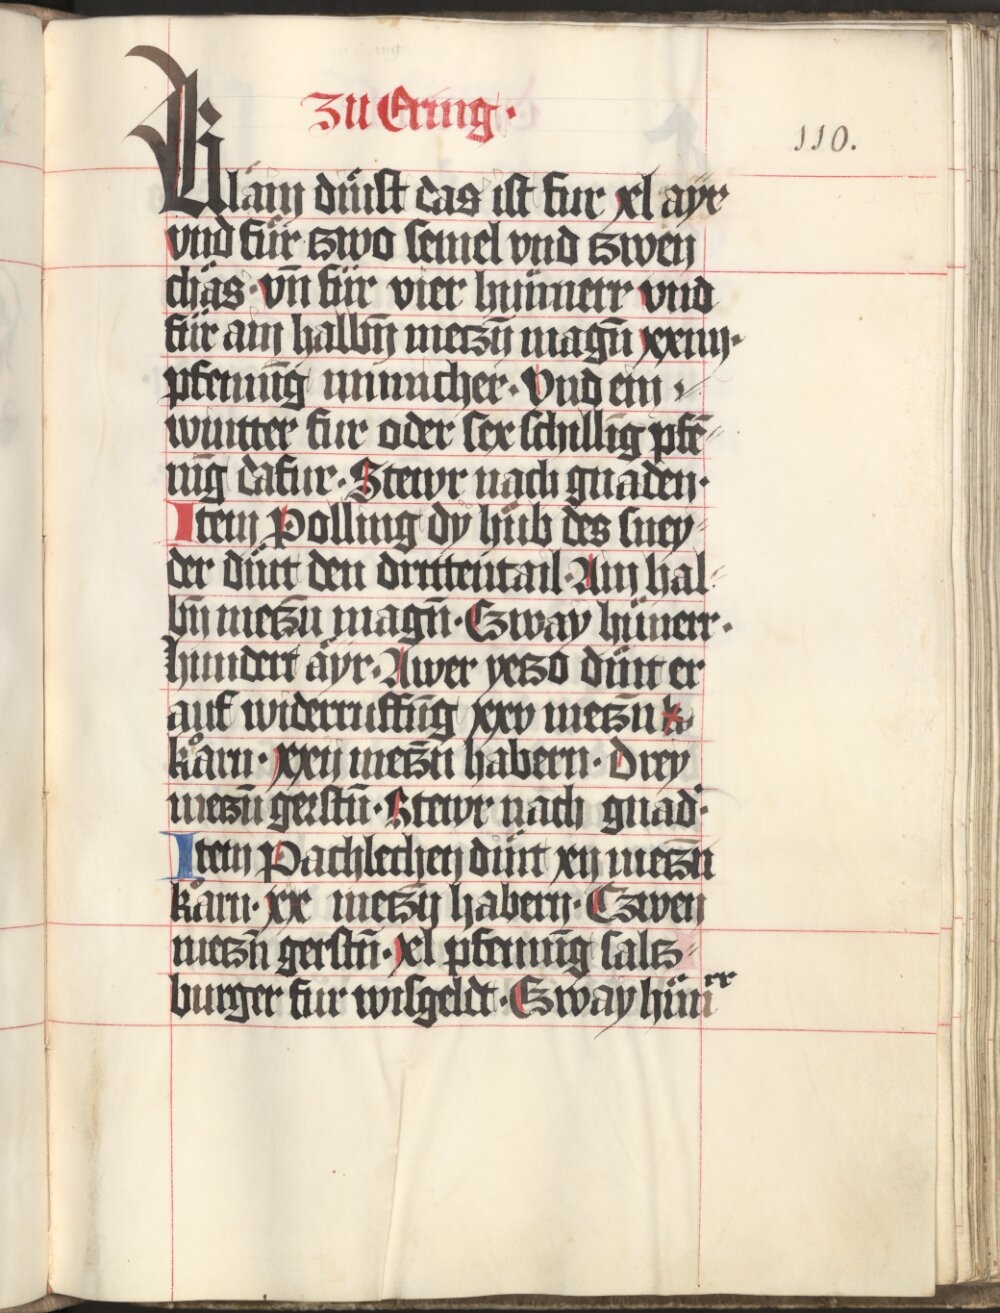 Zu Ering·
110.
Klain dinst das ist fur xl ayr
vnd für tzwo semel vnd tzwen
chäs· vn̄ für vier hünnerr vnd
für ain halbn̄ metzn̄ magn̄ xxiiij·
pfenning münicher· Vnd ein
wintter fur oder sex schilling pfē⸗
nīg dafur· Stewr nach gnaden·
Item Polling dy hüb des sney⸗
der dint den drittentail· Ain hal⸗
bn̄ metzn̄ magn̄· Czway hünerr·
hundert äyr· Awer yetzo dint er
auf widerruffūg xxv metzn̄ k
kärn· xxij metzn̄ habern· Drey
metzn̄ gerstn̄· Stewr nach gnad·
Item Pachlechen dint xij metzn̄
kärn· xx metzn̄ habern· Czwen
metzn̄ gerstn̄· xl pfenning saltz⸗
burger fur wisgeldt· Czway hünerr